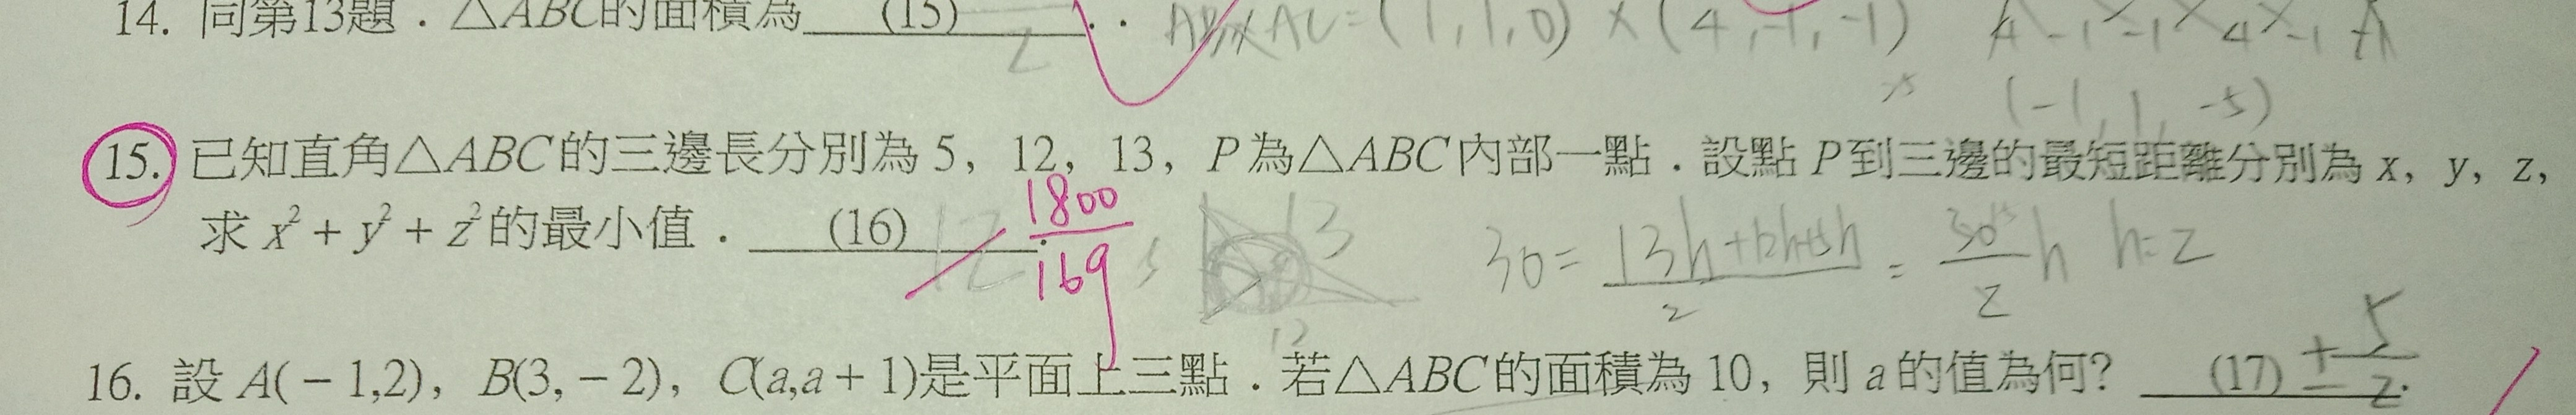 14. 同第13題．△ABC的面積為 (15) ．
AB×AC=(1,1,0)×(4,-1,-1)
(-1,1,-5)
15. 已知直角△ABC的三邊長分別為 5，12，13，P為△ABC內部一點．設點 P到三邊的最短距離分別為 x，y，z，
求 x²+y²+z²的最小值． (16) 12 1800/169
5 13 12
30=(13h+12h+5h)/2=30/2 h h=2
16. 設 A(－1,2)，B(3,－2)，C(a,a+1)是平面上三點．若△ABC的面積為 10，則 a的值為何? (17) ±5/2．